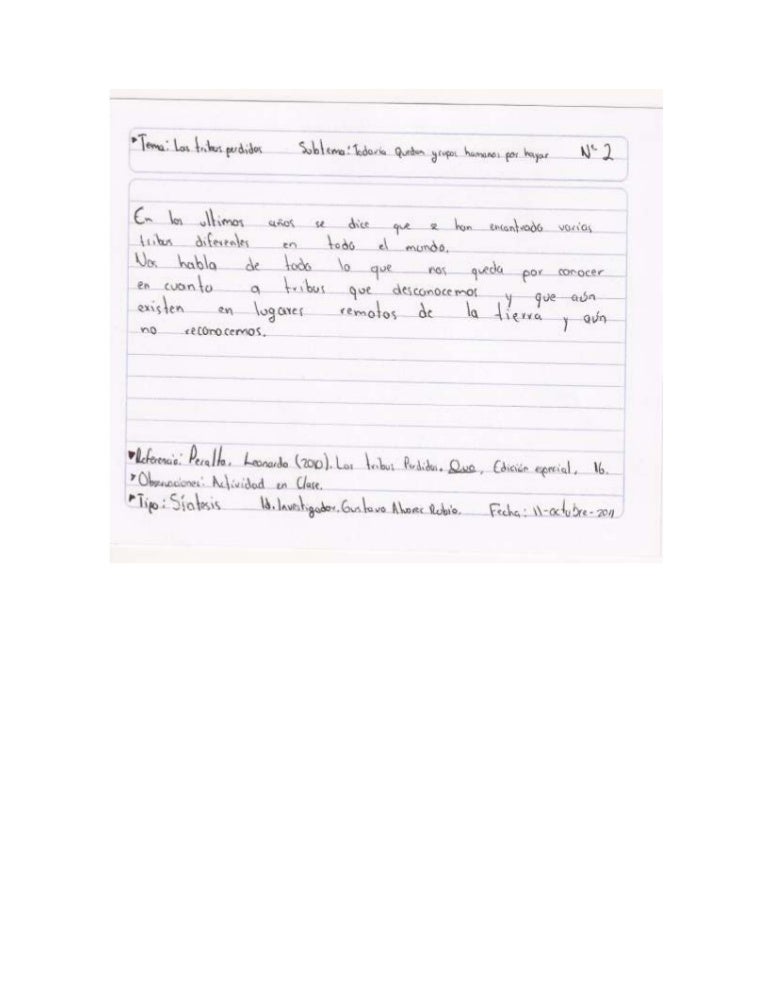 Tema: Las tribus perdidas Subtema: Todavía Quedan grupos humanos por hayar N° 2
En los ultimos años se dice que se han encontrado varias
tribus diferentes en todo el mundo.
Nos habla de todo lo que nos queda por conocer
en cuanto a tribus que desconocemos y que aún
existen en lugares remotos de la tierra y aún
no reconocemos.
Referencia: Peralta, Leonardo (2010). Las tribus Perdidas. Quo, Edición especial, 16.
Observaciones: Actividad en Clase.
Tipo: Síntesis Id. Investigador. Gustavo Alvarez Rubio. Fecha: 11-octubre-2011